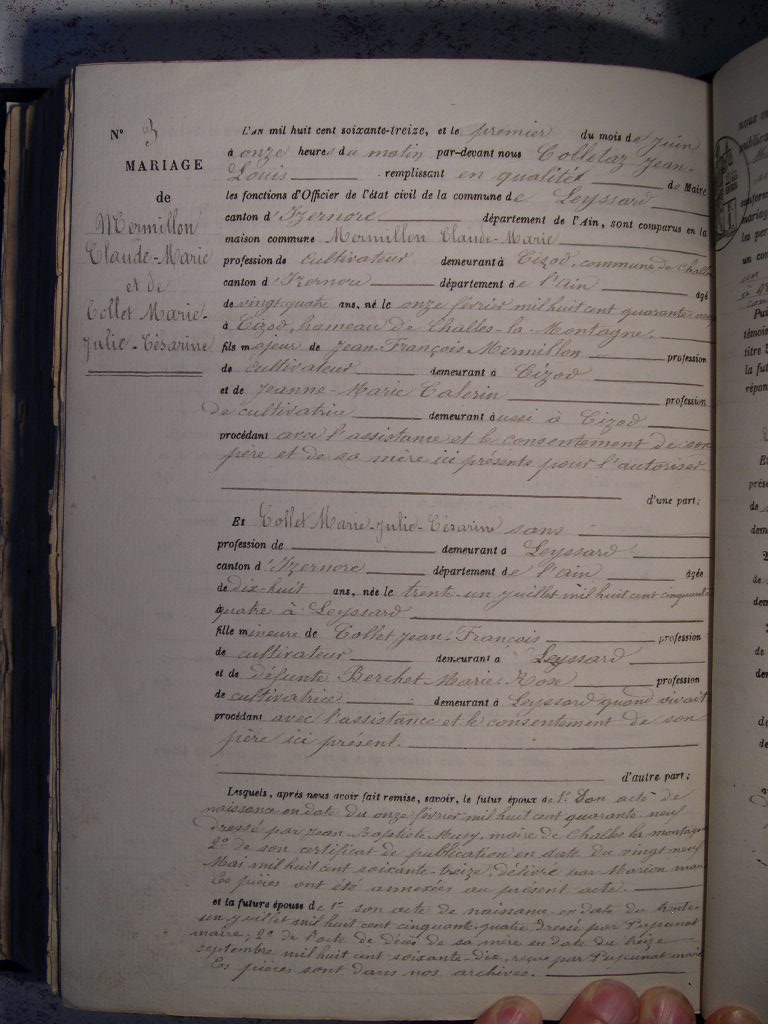 N° 3
MARIAGE
de
Mermillon
Claude-Marie
et de
Collet Marie-
Julie-Césarine
L'AN mil huit cent soixante-treize, et le premier du mois de juin
à onze heures du matin par-devant nous Colletaz Jean-
Louis remplissant en qualité de Maire
les fonctions d'Officier de l'état civil de la commune de Leyssard
canton d'Izernore département de l'Ain, sont comparus en la
maison commune Mermillon Claude-Marie
profession de cultivateur demeurant à Cizod, commune de Challes
canton d'Izernore département de l'ain âgé
de vingt quatre ans, né le onze février mil huit cent quarante neuf
à Cizod, hameau de Challes-la-Montagne.
fils majeur de Jean-François Mermillon profession
de cultivateur demeurant à Cizod
et de Jeanne-Marie profession
de cultivatrice demeurant aussi à Cizod
procédant avec l'assistance et le consentement de son
père et de sa mère ici présents pour l'autoriser.
d'une part;
Et Collet Marie-Julie-Césarine sans
profession de demeurant à Leyssard
canton d'Izernore département de l'ain âgée
de dix-huit ans, née le trente-un juillet mil huit cent cinquante
quatre à Leyssard
fille mineure de Collet Jean-François profession
de cultivateur demeurant à Leyssard
et de défunte Berchet Marie-Rose profession
de cultivatrice demeurant à Leyssard quand vivait
procédant avec l'assistance et le consentement de son
père ici présent.
d'autre part;
Lesquels, après nous avoir fait remise, savoir, le futur époux de 1° Son acte de
naissance en date du onze février mil huit cent quarante neuf
dressé par Jean-Baptiste Musy, maire de Challes la montagne
2° de son certificat de publication en date du vingt neuf
Mai mil huit cent soixante-treize, délivré par Marion maire
Ces pièces ont été annexées au présent acte.
et la future épouse de 1° son acte de naissance en date du trente-
un juillet mil huit cent cinquante quatre dressé par
maire; 2° de l'acte de décès de sa mère en date du treize
septembre mil huit cent soixante-dix, reçue par maire
Ces pièces sont dans nos archives.